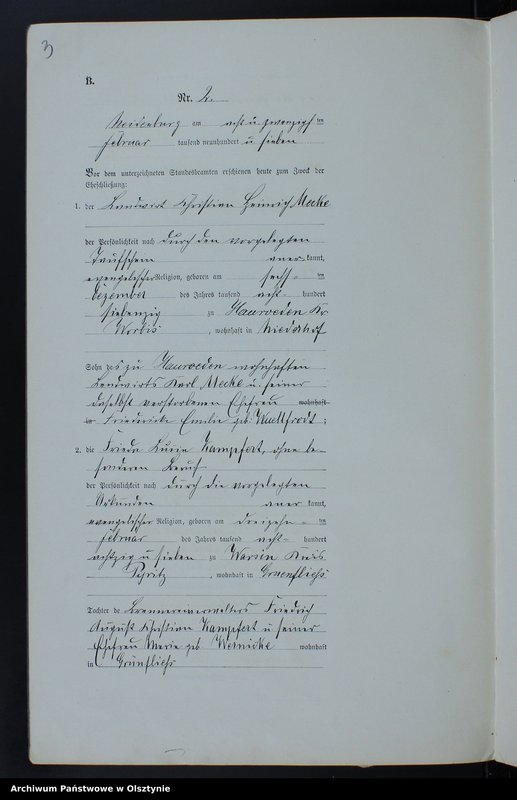 3
B.
Nr. 2.
Neidenburg am acht u. zwanzigsten
Februar tausend neunhundert u. sieben
Vor dem unterzeichneten Standesbeamten erschienen heute zum Zweck der
Eheschließung:
1. der Landwirt Christian Heinrich Mecke
der Persönlichkeit nach durch den vorgelegten
Taufschein anerkannt,
evangelischer Religion, geboren am sechs- ten
Dezember des Jahres tausend acht- hundert
siebenzig zu Hauroeden Kr.
Worbis, wohnhaft in Niederhof
Sohn des zu Hauroeden wohnhaften
Landwirts Karl Mecke u. seiner
daselbst verstorbenen Ehefrau wohnhaft
in Friedericke Emilie geb.
2. die Frieda Luise Kampfert, ohne be-
sonderen Beruf
der Persönlichkeit nach durch die vorgelegten
Urkunden anerkannt,
evangelischer Religion, geboren am dreizehn- ten
Februar des Jahres tausend acht- hundert
achtzig u. sieben zu Warsin Kreis
Pyritz, wohnhaft in Gruenfliess
Tochter des Brennereiverwalters Friedrich
August Christian Kampfert u. seiner
Ehefrau Marie geb. Wernicke wohnhaft
in Grünfliess
Archiwum Państwowe w Olsztynie